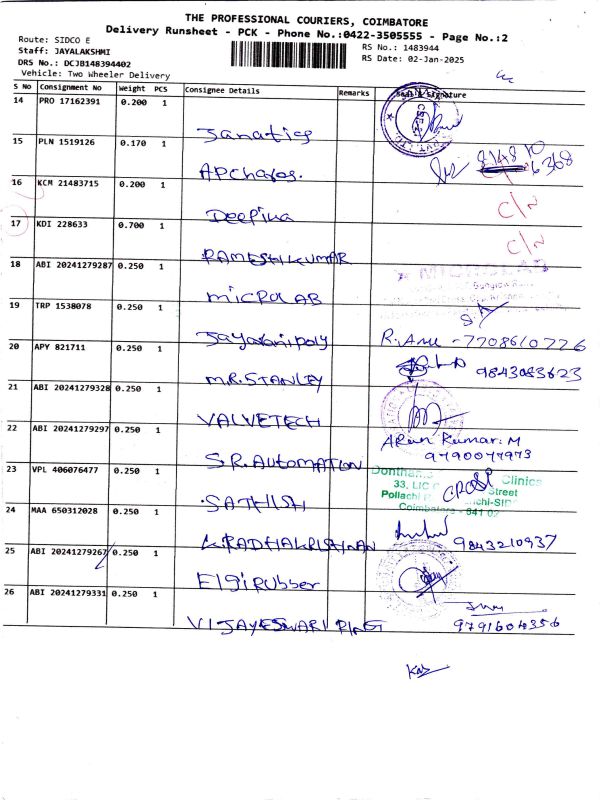 THE PROFESSIONAL COURIERS, COIMBATORE
Delivery Runsheet - PCK - Phone No.:0422-3505555 - Page No.:2
Route: SIDCO E
Staff: JAYALAKSHMI
DRS No.: DCJB148394402
Vehicle: Two Wheeler Delivery
RS No.: 1483944
RS Date: 02-Jan-2025
S No Consignment No Weight PCS Consignee Details Remarks Seal & Signature
14 PRO 17162391 0.200 1
15 PLN 1519126 0.170 1
APCharges.
16 KCM 21483715 0.200 1 C/N
Deepika
17 KDI 228633 0.700 1 C/N
RAMESHKUMAR
18 ABI 20241279287 0.250 1
MICROLAB
19 TRP 1538078 0.250 1
R. -7708610776
20 APY 821711 0.250 1
M.R.STANLEY 9843083623
21 ABI 20241279328 0.250 1
VALVETECH
22 ABI 20241279297 0.250 1 ARun Kumar.M
9790077973
S.R.AutomATION
23 VPL 406076477 0.250 1 Clinics
33, LIC Street
Pollachi
Coimbatore - 641 02
SATHISH
24 MAA 650312028 0.250 1
K.RADHAKRISHNAN 9843210937
25 ABI 20241279267 0.250 1
ElgiRubber
26 ABI 20241279331 0.250 1
VIJAYESWARI 9791604356